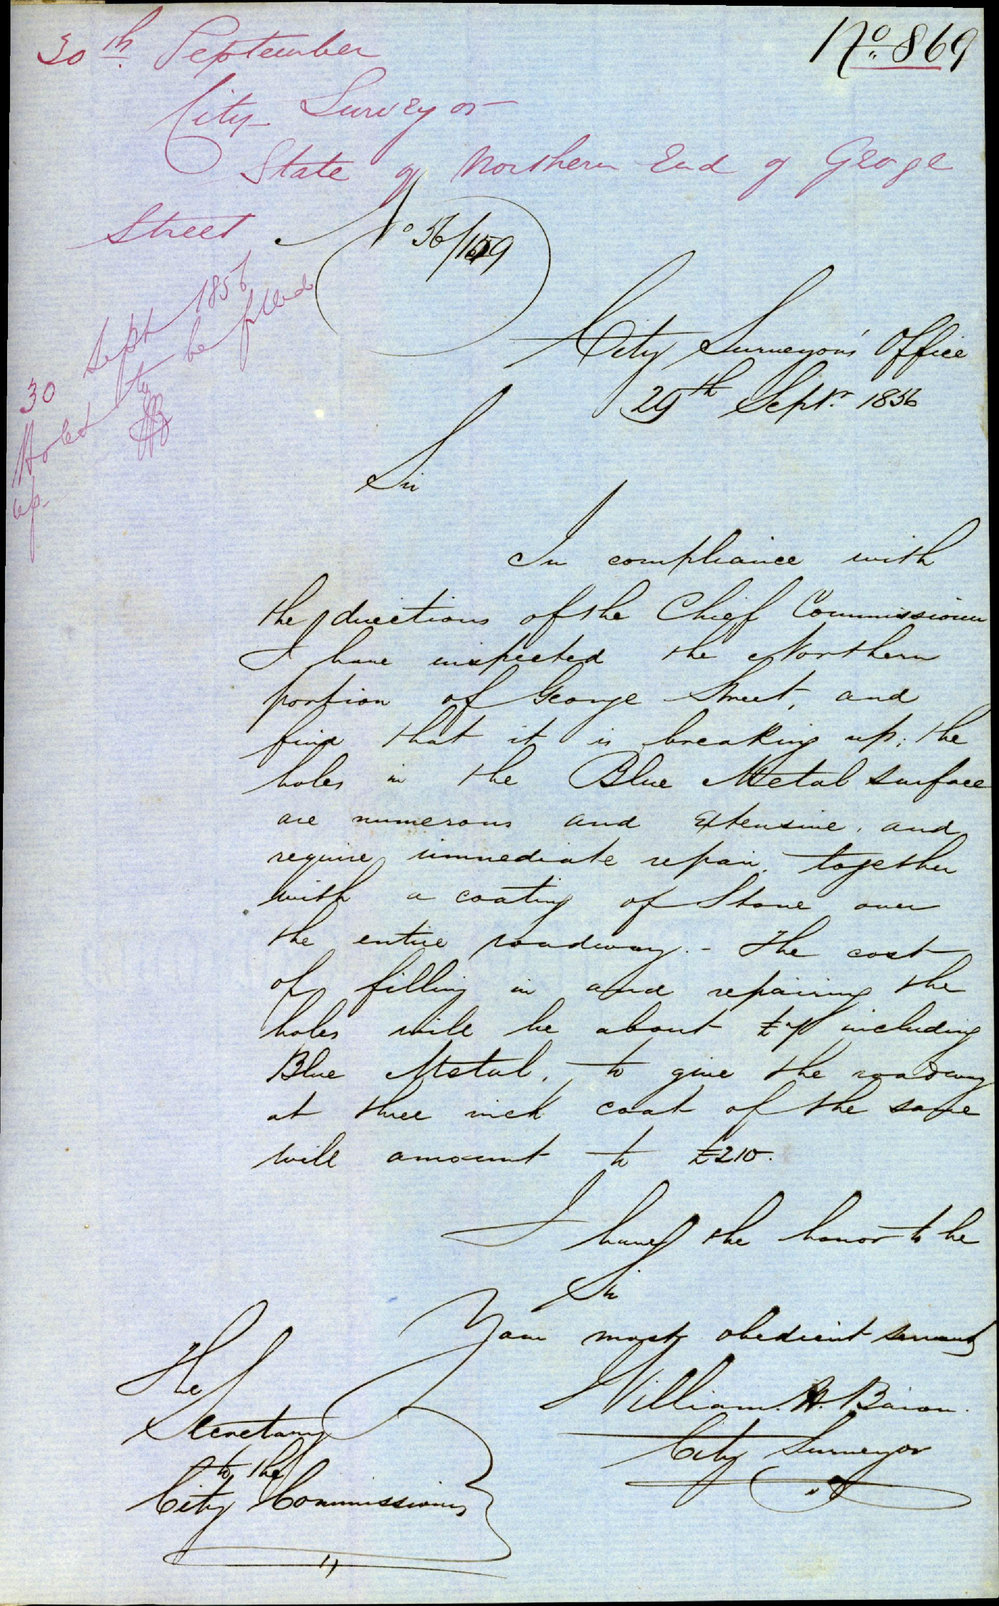 No. 869
30th September
City Surveyor
State of Northern End of George
Street
No 56/1159
30 Sept 1856
Holes to be filled
up.
City Surveyor's Office
29th Septr. 1856
Sir
In compliance with
the directions of the Chief Commissioner
I have inspected the Northern
portion of George Street, and
find that it is breaking up; the
holes in the Blue Metal surface
are numerous and extensive, and
require immediate repair, together
with a coating of Stone over
the entire roadway. - The cost
of filling in and repairing the
holes will be about including
Blue Metal, to give the roadway
at three inch coat of the same
will amount to £210.
I have the honor to be
Sir
Your most obedient servant
William A. Baron.
City Surveyor
The
Secretary
to the
City Commissioners